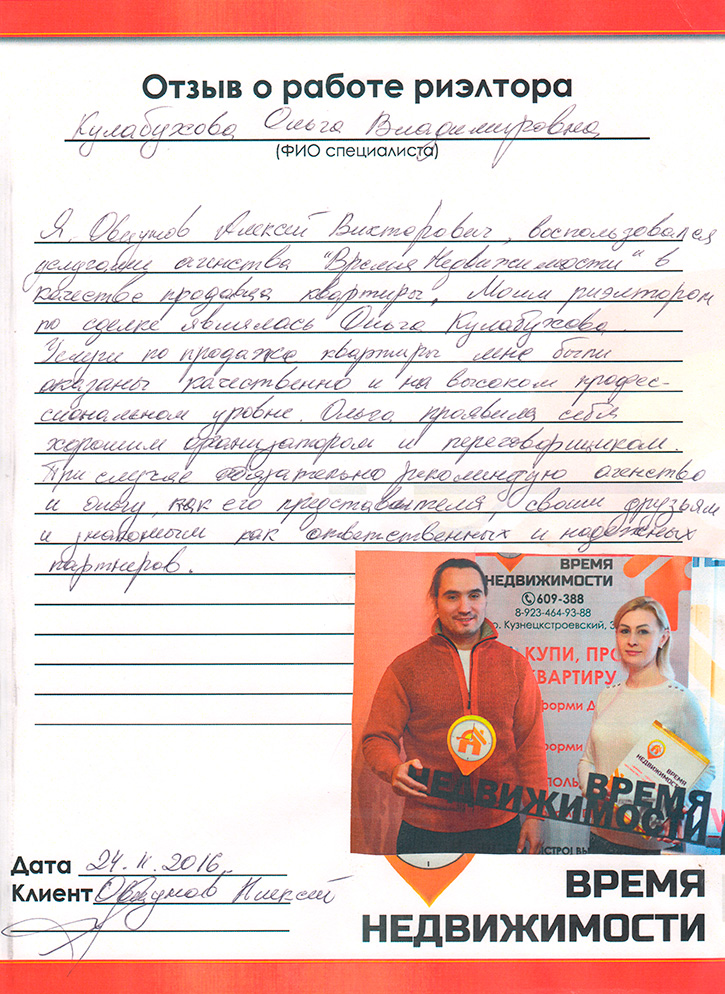 Отзыв о работе риэлтора
Кулабухова Ольга Владимировна
(ФИО специалиста)
Я, Алексей Викторович, воспользовался
услугами агенства "Время Недвижимости" в
качестве продавца квартиры. Моим риэлтором
по сделке являлась Ольга Кулабухова.
Услуги по продаже квартиры мне были
оказаны качественно и на высоком профес-
сиональном уровне. Ольга проявила себя
хорошим организатором и переговорщиком.
При случае обязательно рекомендую агенство
и Ольгу, как его представителя, своим друзьям
и знакомым как ответственных и надежных
партнеров.
ВРЕМЯ
НЕДВИЖИМОСТИ
609-388
8-923-464-93-88
р. Кузнецкстроевский, 3
КУПИ, ПРО
КВАРТИРУ
форми Д
форми
ПОЛЬ
ВРЕМЯ
НЕДВИЖИМОСТЬ
ВРЕМЯ
НЕДВИЖИМОСТИ
Дата 24.11.2016
Клиент Алексей
ВРЕМЯ
НЕДВИЖИМОСТИ